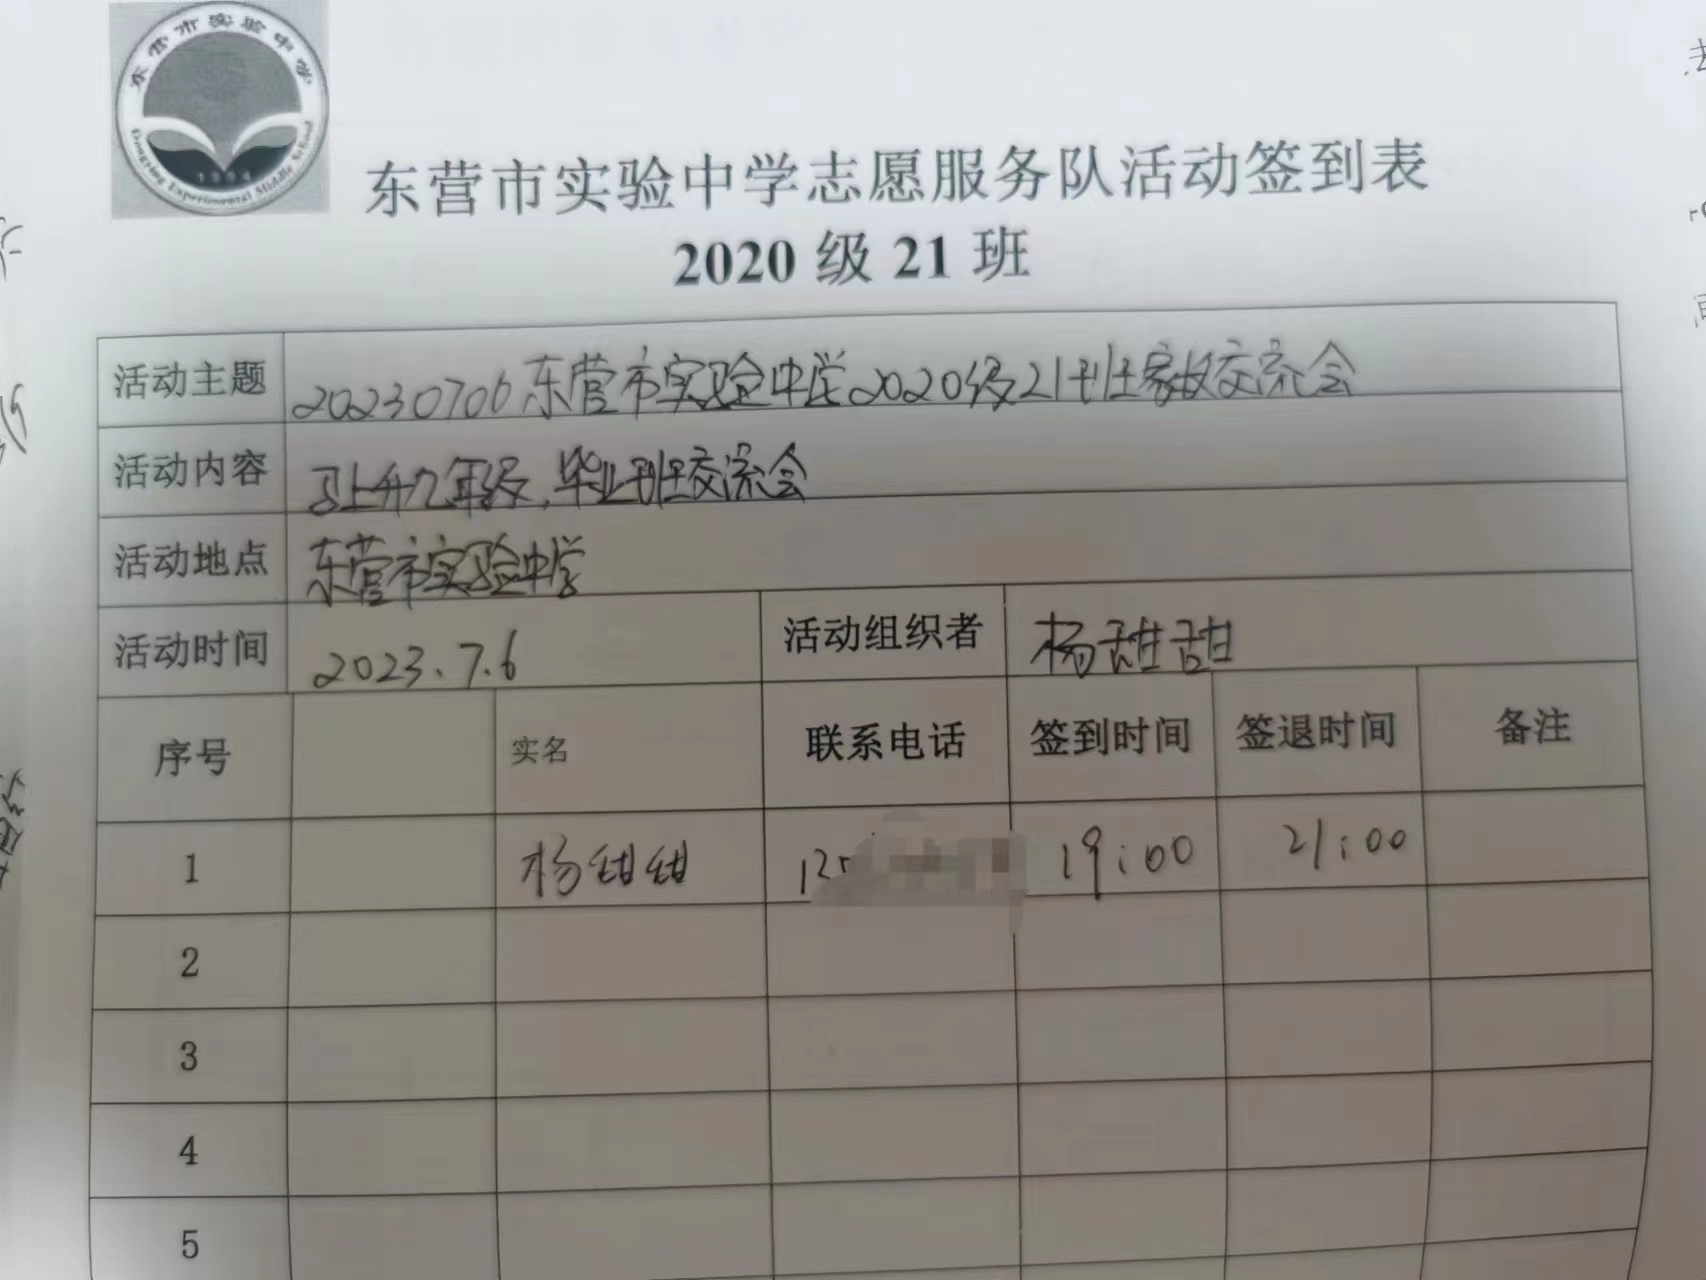 东营市实验中学
Dongying Experimental Middle School
东营市实验中学志愿服务队活动签到表
2020级21班
活动主题 20230706东营市实验中学2020级21班家校交流会
活动内容 马上升九年级,毕业班交流会
活动地点 东营市实验中学
活动时间 2023.7.6 活动组织者 杨甜甜
序号 实名 联系电话 签到时间 签退时间 备注
1 杨甜甜 19:00 21:00
2
3
4
5